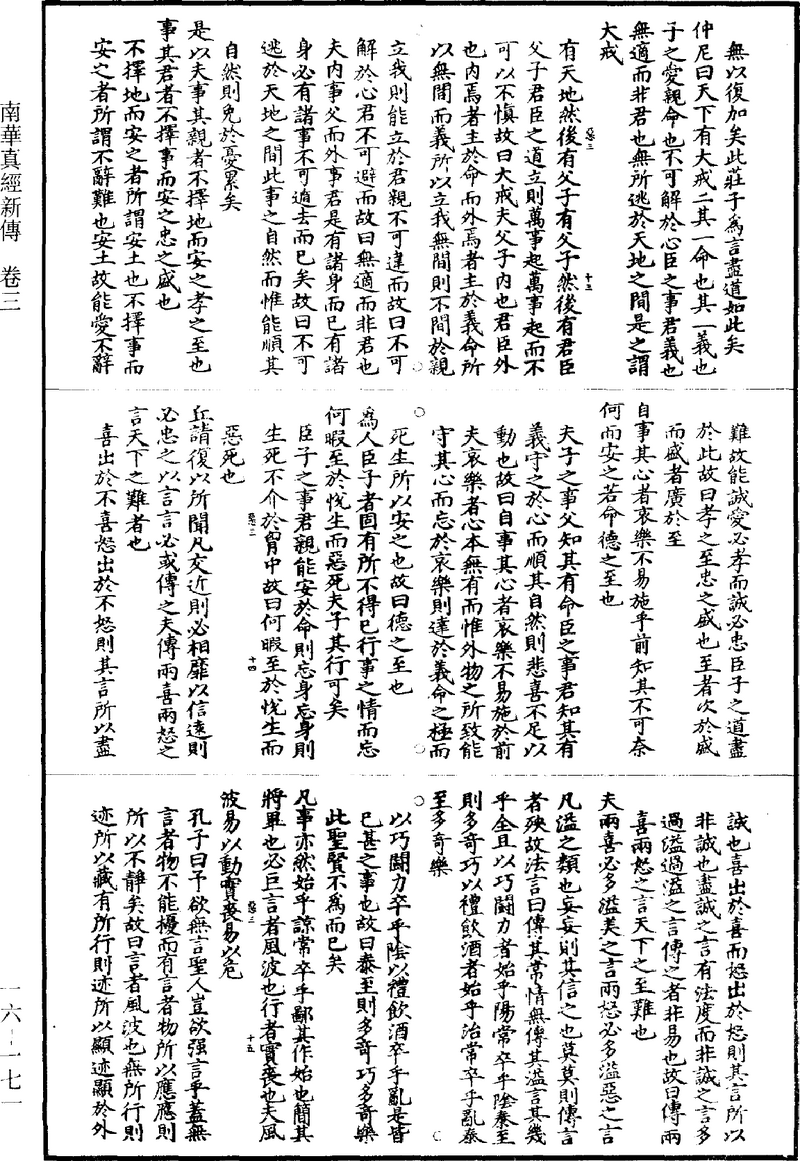 南華真經新傳　卷三
無以復加矣此莊子為言盡道如此矣
仲尼曰天下有大戒二其一命也其一義也
子之愛親命也不可解於心臣之事君義也
無適而非君也無所逃於天地之間是之謂
大戒
有天地然後有父子有父子然後有君臣
父子君臣之道立則萬事起萬事起而不
可以不慎故曰大戒夫父子內也君臣外
也內焉者主於命而外焉者主於義命所
以無間而義所以立我無間則不間於親
立我則能立於君親不可違而故曰不可
解於心君不可避而故曰無適而非君也
夫內事父而外事君是有諸身而已有諸
身必有諸事不可逃去而已矣故曰不可
逃於天地之間此事之自然而惟能順其
自然則免於憂累矣
是以夫事其親者不擇地而安之孝之至也
事其君者不擇事而安之忠之盛也
不擇地而安之者所謂安土也不擇事而
安之者所謂不辭難也安土故能愛不辭
難故能誠愛必孝而誠必忠臣子之道盡
於此故曰孝之至忠之盛也至者次於盛
而盛者廣於至
自事其心者哀樂不易施乎前知其不可奈
何而安之若命德之至也
夫子之事父知其有命臣之事君知其有
義守之於心而順其自然則悲喜不足以
動也故曰自事其心者哀樂不易施於前
夫哀樂者心本無有而惟外物之所致能
守其心而忘於哀樂則達於義命之極而
死生所以安之也故曰德之至也
為人臣子者固有所不得已行事之情而忘
何暇至於悅生而惡死夫子其行可矣
臣子之事君親能安於命則忘身忘身則
生死不介於胷中故曰何暇至於悅生而
惡死也
丘請復以所聞凡交近則必相靡以信遠則
必忠之以言言必或傳之夫傳兩喜兩怒之
言天下之難者也
喜出於不喜怒出於不怒則其言所以盡
誠也喜出於喜而怒出於怒則其言所以
非誠也盡誠之言有法度而非誠之言多
過溢過溢之言傳之者非易也故曰傳兩
喜兩怒之言天下之至難也
夫兩喜必多溢美之言兩怒必多溢惡之言
凡溢之類也妄妄則其信之也莫莫則傳言
者殃故法言曰傳其常情無傳其溢言其幾
乎全且以巧鬬力者始乎陽常卒乎陰泰至
則多奇巧以禮飲酒者始乎治常卒乎亂泰
至多奇樂
以巧鬬力卒乎陰以禮飲酒卒乎亂是皆
已甚之事也故曰泰至則多奇巧多奇樂
此聖賢不為而已矣
凡事亦然始乎諒常卒乎鄙其作始也簡其
將畢也必巨言者風波也行者實喪也夫風
波易以動實喪易以危
孔子曰予欲無言聖人豈欲强言乎蓋無
言者物不能擾而有言者物所以應應則
所以不靜矣故曰言者風波也無所行則
迹所以藏有所行則迹所以顯迹顯於外
惡三
十三
惡三
十四
惡三
十五
一六－一七一